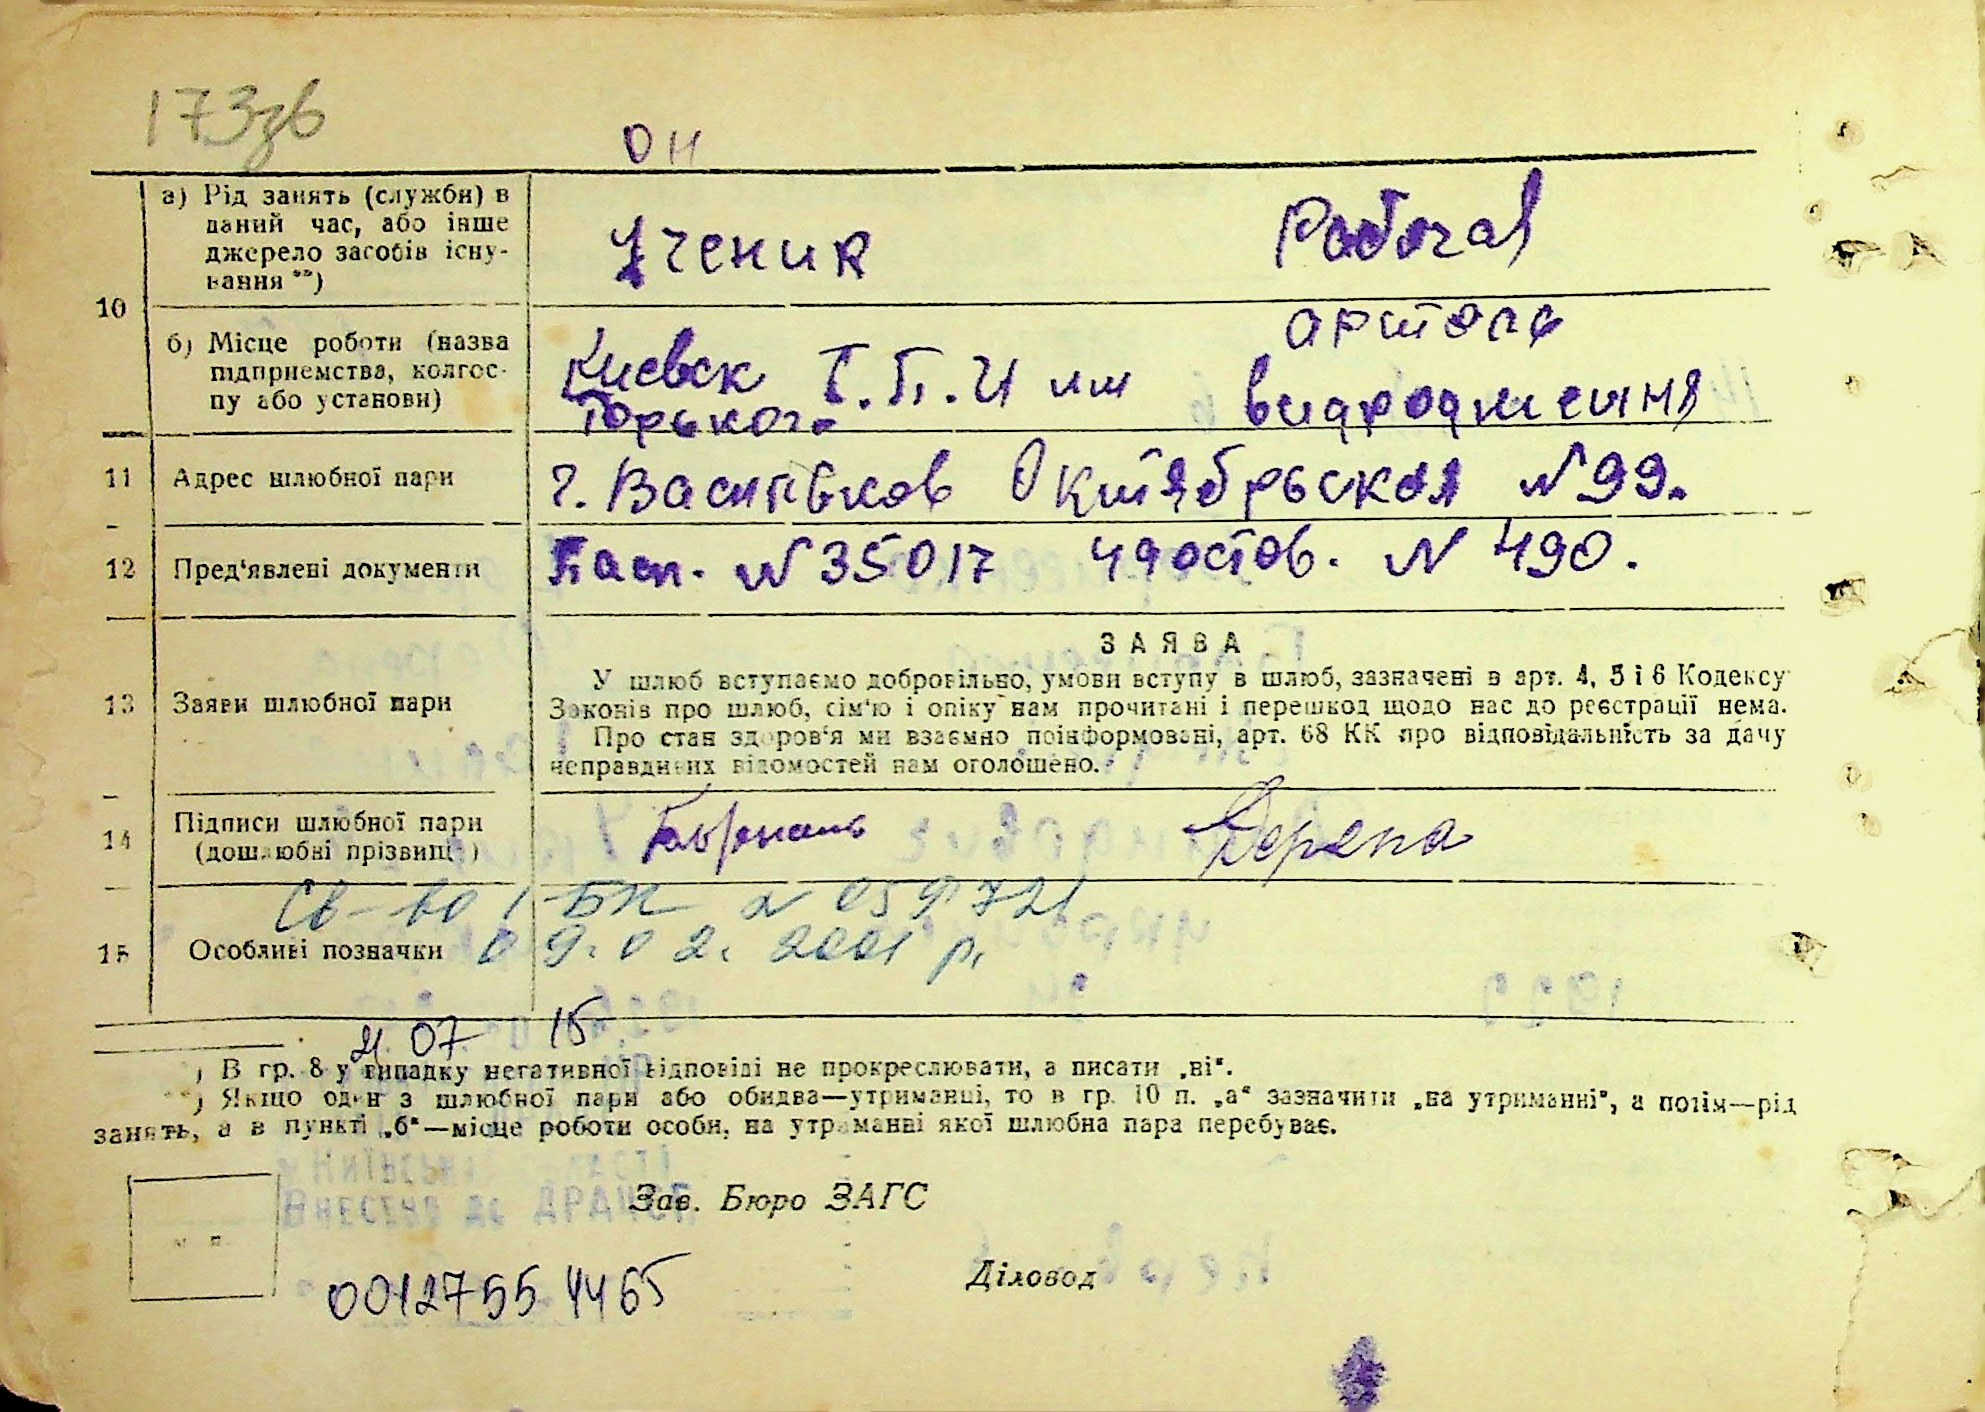 173зв
ОН
10
а) Рід занять (служби) в
даний час, або інше
джерело засобів існу-
вання **)
Ученик
Рабочая
б) Місце роботи (назва
підприємства, колгос-
пу або установи)
артель
Киевск Г.П.И им
Горького
видроджения
11 Адрес шлюбної пари
г. Васильков Октябрьская №99.
12 Пред'явлені документи
Пасп. №35017 удостов. № 490.
13 Заяви шлюбної пари
ЗАЯВА
У шлюб вступаємо добровільно, умови вступу в шлюб, зазначені в арт. 4, 5 і 6 Кодексу
Законів про шлюб, сім'ю і опіку нам прочитані і перешкод щодо нас до реєстрації нема.
Про стан здоров'я ми взаємно поінформовані, арт. 68 КК про відповідальність за дачу
неправдивих відомостей нам оголошено.
14 Підписи шлюбної пари
(дошлюбні прізвища)
Св-во І БК № 059721
15 Особливі позначки 09.02.2001 р.
21 07 15
*) В гр. 8 у випадку негативної відповіді не прокреслювати, а писати „ні“.
**) Якщо один з шлюбної пари або обидва—утриманці, то в гр. 10 п. „а“ зазначити „на утриманні“, а потім—рід
занять, а в пункті „б“—місце роботи особи, на утриманні якої шлюбна пара перебуває.
Зав. Бюро ЗАГС
м. п.
Діловод
00127554465